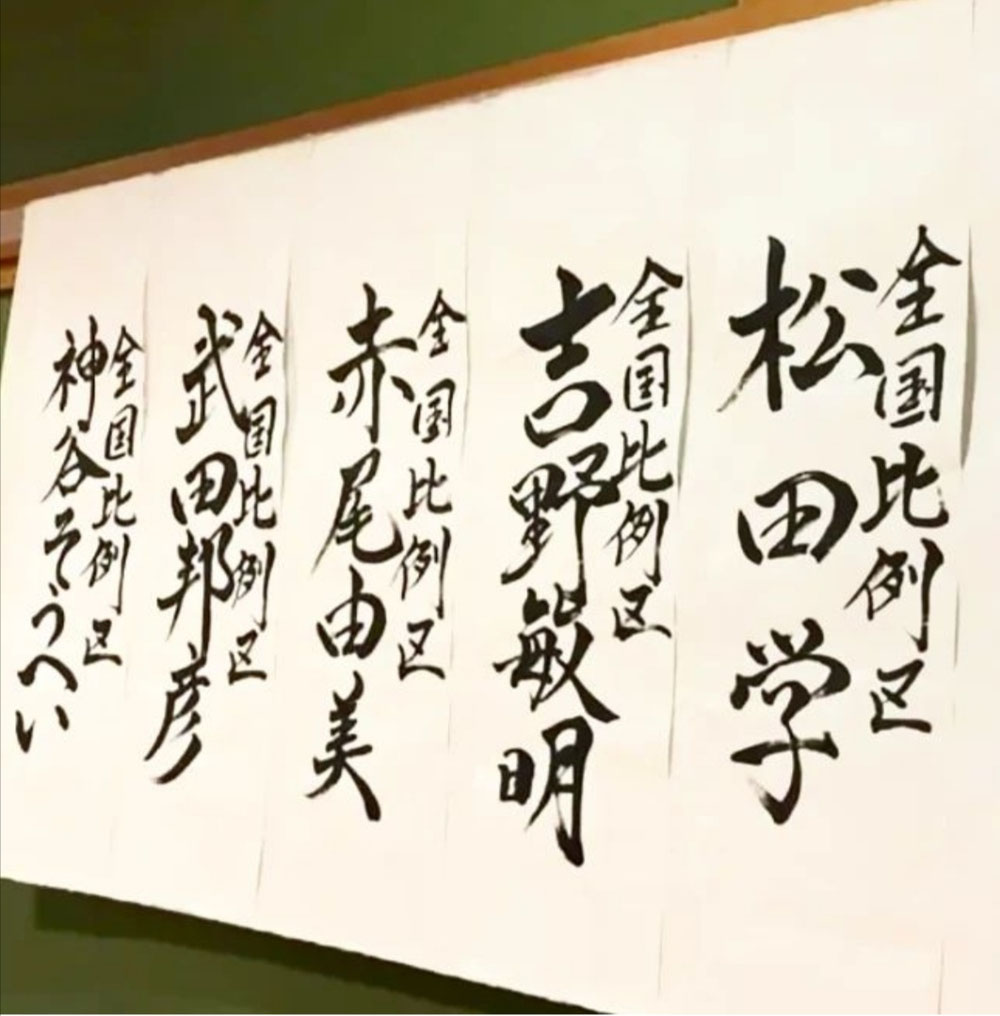 全国比例区
松田学
全国比例区
吉野敏明
全国比例区
赤尾由美
全国比例区
武田邦彦
全国比例区
神谷そうへい